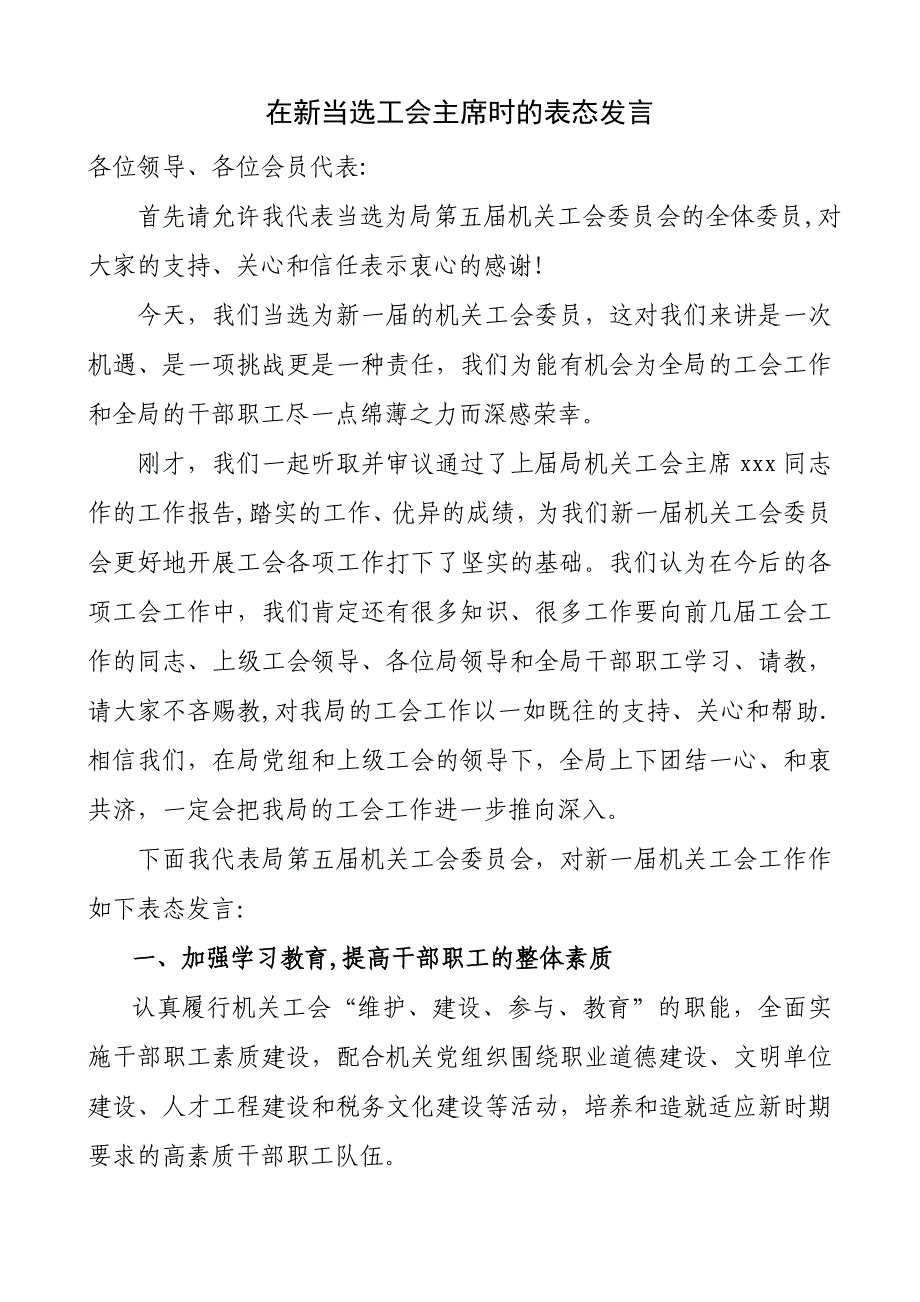 在新当选工会主席时的表态发言
各位领导、各位会员代表:
首先请允许我代表当选为局第五届机关工会委员会的全体委员,对
大家的支持、关心和信任表示衷心的感谢!
今天，我们当选为新一届的机关工会委员，这对我们来讲是一次
机遇、是一项挑战更是一种责任，我们为能有机会为全局的工会工作
和全局的干部职工尽一点绵薄之力而深感荣幸。
刚才，我们一起听取并审议通过了上届局机关工会主席 xxx 同志
作的工作报告,踏实的工作、优异的成绩，为我们新一届机关工会委员
会更好地开展工会各项工作打下了坚实的基础。我们认为在今后的各
项工会工作中，我们肯定还有很多知识、很多工作要向前几届工会工
作的同志、上级工会领导、各位局领导和全局干部职工学习、请教，
请大家不吝赐教,对我局的工会工作以一如既往的支持、关心和帮助.
相信我们，在局党组和上级工会的领导下，全局上下团结一心、和衷
共济，一定会把我局的工会工作进一步推向深入。
下面我代表局第五届机关工会委员会，对新一届机关工会工作作
如下表态发言:
一、加强学习教育,提高干部职工的整体素质
认真履行机关工会“维护、建设、参与、教育”的职能，全面实
施干部职工素质建设，配合机关党组织围绕职业道德建设、文明单位
建设、人才工程建设和税务文化建设等活动，培养和造就适应新时期
要求的高素质干部职工队伍。